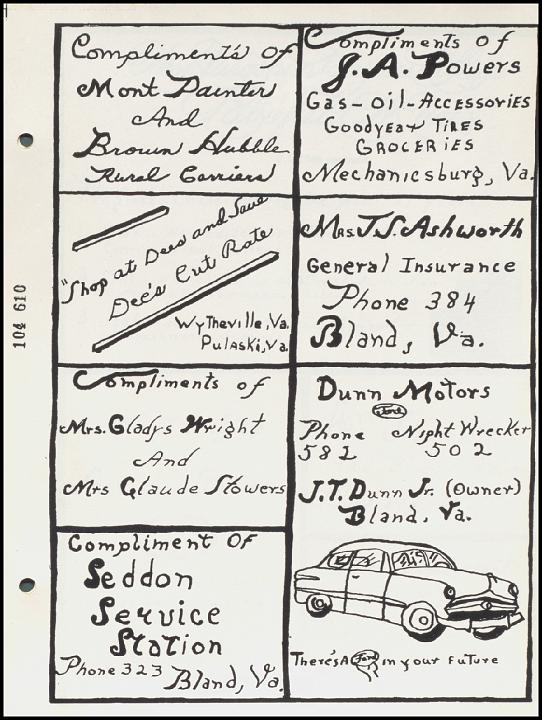 Compliments of
Mont Painter
And
Brown Hubble
Rural Carriers
Compliments of
J.A. Powers
Gas-Oil-Accessories
Goodyear Tires
Groceries
Mechanicsburg, Va.
"Shop at Dees and Save
Dee's Cut Rate
Wytheville, Va.
Pulaski, Va.
Mrs. J.S. Ashworth
General Insurance
Phone 384
Bland, Va.
Compliments of
Mrs. Gladys Wright
And
Mrs Claude Stowers
Dunn Motors
Ford
Phone 581
Night Wrecker 502
J.T. Dunn Jr. (Owner)
Bland, Va.
There's A Ford in your Future
Compliment Of
Seddon
Service
Station
Phone 323
Bland, Va.
104 610